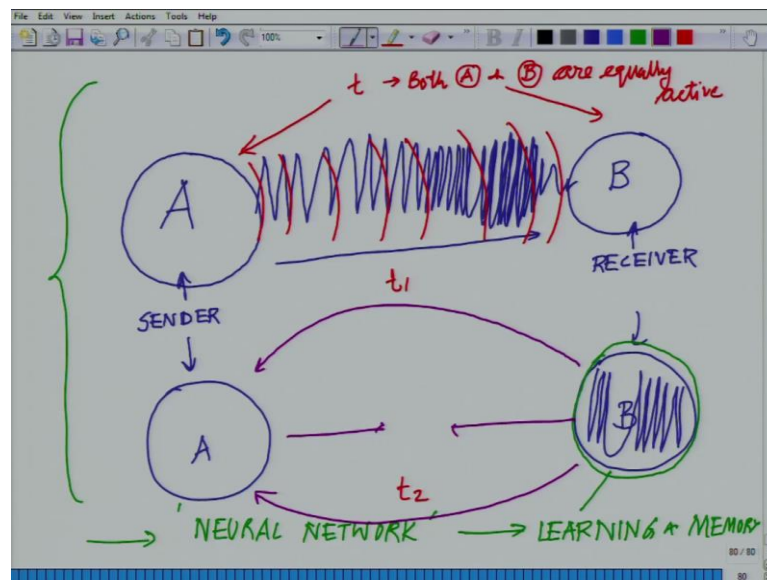 File Edit View Insert Actions Tools Help
100%
B I
t → Both Ⓐ + Ⓑ are equally
active
A
B
SENDER
RECEIVER
t1
A
B
t2
NEURAL NETWORK → LEARNING + MEMORY
80 / 80
80